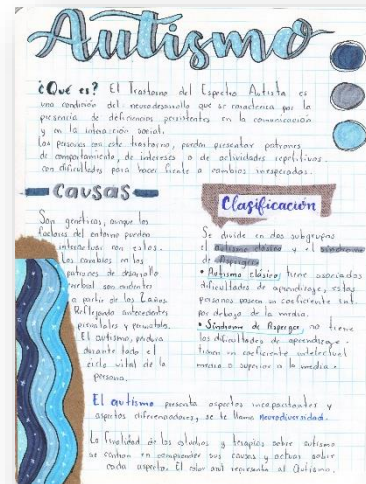 Autismo
¿Qué es? El Trastorno del Espectro Autista es
una condición del neurodesarrollo que se caracteriza por la
presencia de deficiencias persistentes en la comunicación
y en la interacción social.
Las personas con este trastorno, pueden presentar patrones
de comportamiento, de intereses o de actividades repetitivas.
con dificultades para hacer frente a cambios inesperados.
Causas
Son genéticas, aunque los
factores del entorno pueden
interactuar con estos.
Los cambios en los
patrones de desarrollo
verbal son evidentes
a partir de los 2 años
Reflejando antecedentes
prenatales y perinatales.
El autismo, perdura
durante todo el
ciclo vital de la
persona.
Clasificación
Se divide en dos subgrupos
el autismo clásico y el síndrome
de Asperger
• Autismo clásico, tiene asociadas
dificultades de aprendizaje, estas
personas poseen un coeficiente int.
por debajo de la media.
• Síndrome de Asperger, no tiene
las dificultades de aprendizaje -
tienen un coeficiente intelectual
media o superior a la media.
El autismo presenta aspectos incapacitantes y
aspectos diferenciadores, se le llama neurodiversidad.
La finalidad de los estudios y terapias sobre autismo
se centran en comprender sus causas y actuar sobre
cada aspecto. El color azul representa al Autismo.